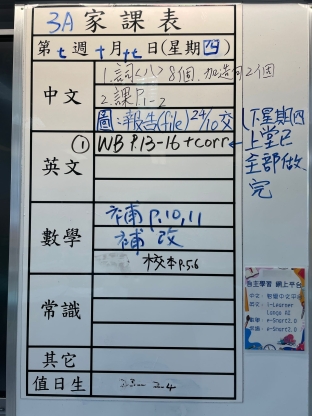 3A 家課表
第七週十月十七日(星期四)
中文
1.詞<八>8個,加造句2個
2.課P.1-2
圖:報告(file) 24/10交
(下星期四
英文
① WB P.13-16 + corr
←上堂已
全部做
完
數學
補 P.10,11
補 改
校本P.5,6
常識
其它
值日生
自主學習 網上平台
英文: i-Learner
數學: e-Smart2.0
常識: e-Smart2.0